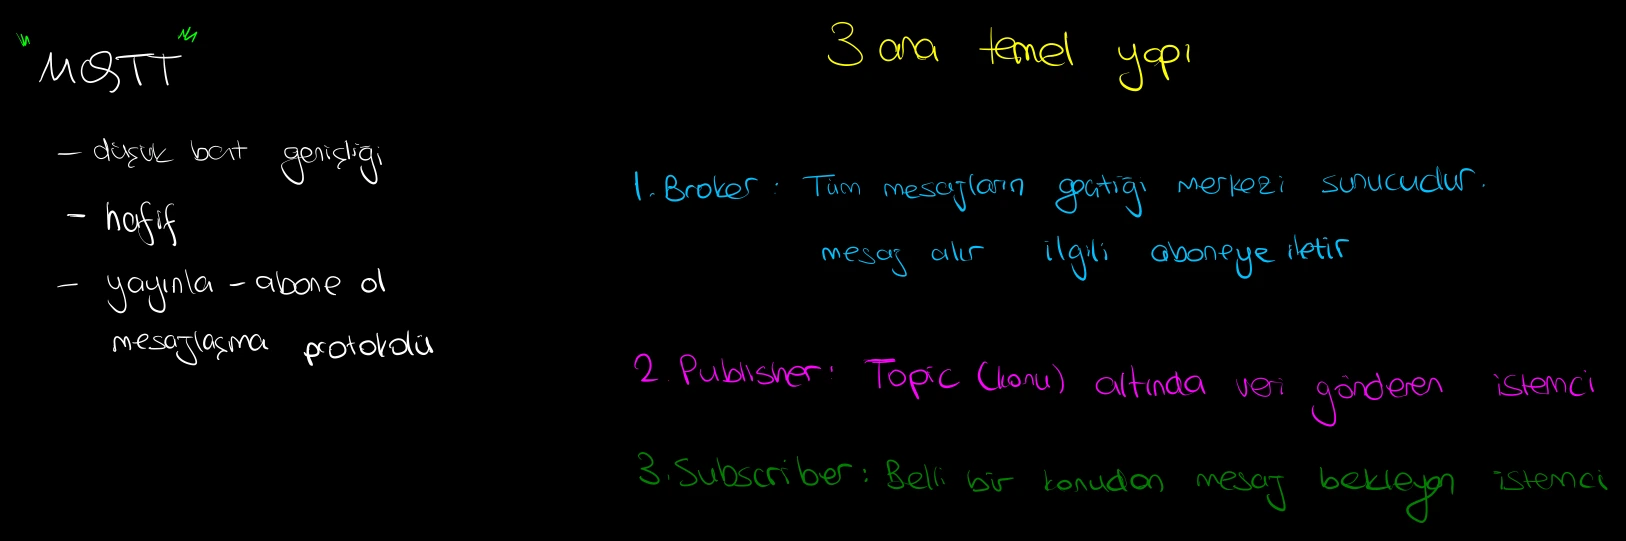 "MQTT"
- düşük bant genişliği
- hafif
- yayınla - abone ol
mesajlaşma protokolü
3 ana temel yapı
1. Broker: Tüm mesajların geçtiği merkezi sunucudur.
mesaj alır ilgili aboneye iletir
2. Publisher: Topic (konu) altında veri gönderen istemci
3. Subscriber: Belli bir konudan mesaj bekleyen istemci